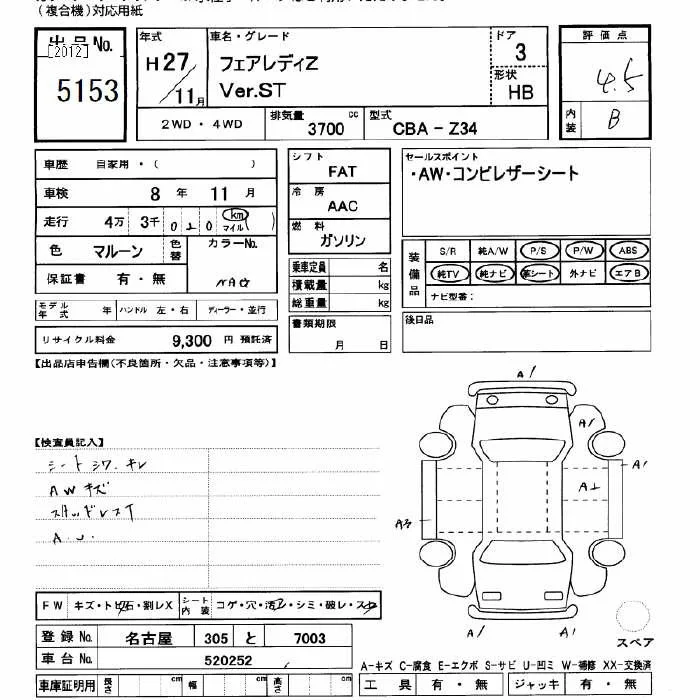 （複合機）対応用紙
出品No.
[2012]
5153
年式
H27/11月
車名・グレード
フェアレディZ
Ver.ST
ドア
3
形状
HB
2WD・4WD
排気量 cc
3700
型式
CBA-Z34
評価点
4.5
内装
B
車歴 自家用・( )
車検 8年 11月
走行 4万 3千 0 2 0 km マイル( )
色 マルーン 色替
カラーNo.
NAG
保証書 有・無
モデル年式 年 ハンドル 左・右 ディーラー・並行
リサイクル料金 9,300 円 預託済
シフト
FAT
冷房
AAC
燃料
ガソリン
乗車定員 名
積載量 kg
総重量 kg
書類期限
月 日
セールスポイント
・AW・コンビレザーシート
装備品
S/R 純A/W P/S P/W ABS
純TV 純ナビ 革シート 外ナビ エアB
ナビ型番：
後日品
【出品店申告欄(不良箇所・欠品・注意事項等)】
【検査員記入】
シートシワ.キレ
AWキズ
スタッドレスT
A.U.
A1
A1
A1
A1
A3
A1
A1
スペア
FW キズ・トビ石・割レX シート内装 コゲ・穴・汚レ・シミ・破レ・スレ
登録No. 名古屋 305 と 7003
車台No. 520252
車庫証明用 長さ cm 幅 cm 高さ cm
A-キズ C-腐食 E-エクボ S-サビ U-凹ミ W-補修 XX-交換済
工具 有・無 ジャッキ 有・無